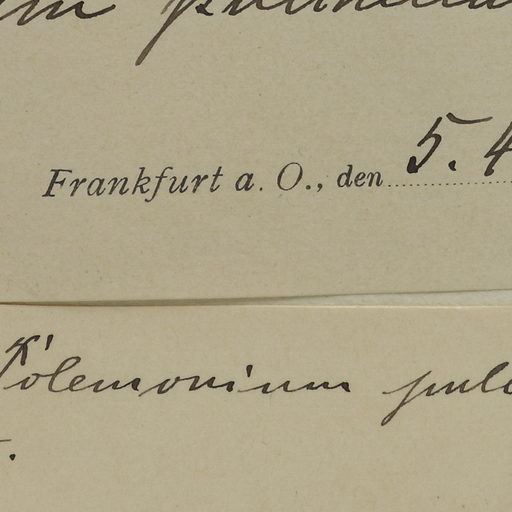 Frankfurt a. O., den 5. 4
Polemonium pulc